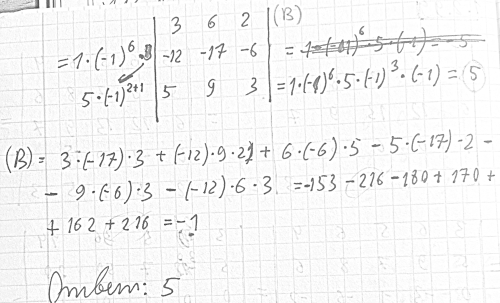 3 6 2 (B)
= 1·(-1)^6 · | -12 -17 -6 | = 1·(-1)^6·5·(-1) = -5
5·(-1)^{2+1} | 5 9 3 | = 1·(-1)^6·5·(-1)^3·(-1) = 5
(B) = 3·(-17)·3 + (-12)·9·2 + 6·(-6)·5 - 5·(-17)·2 -
- 9·(-6)·3 - (-12)·6·3 = -153 - 216 - 180 + 170 +
+ 162 + 216 = -1
Ответ: 5